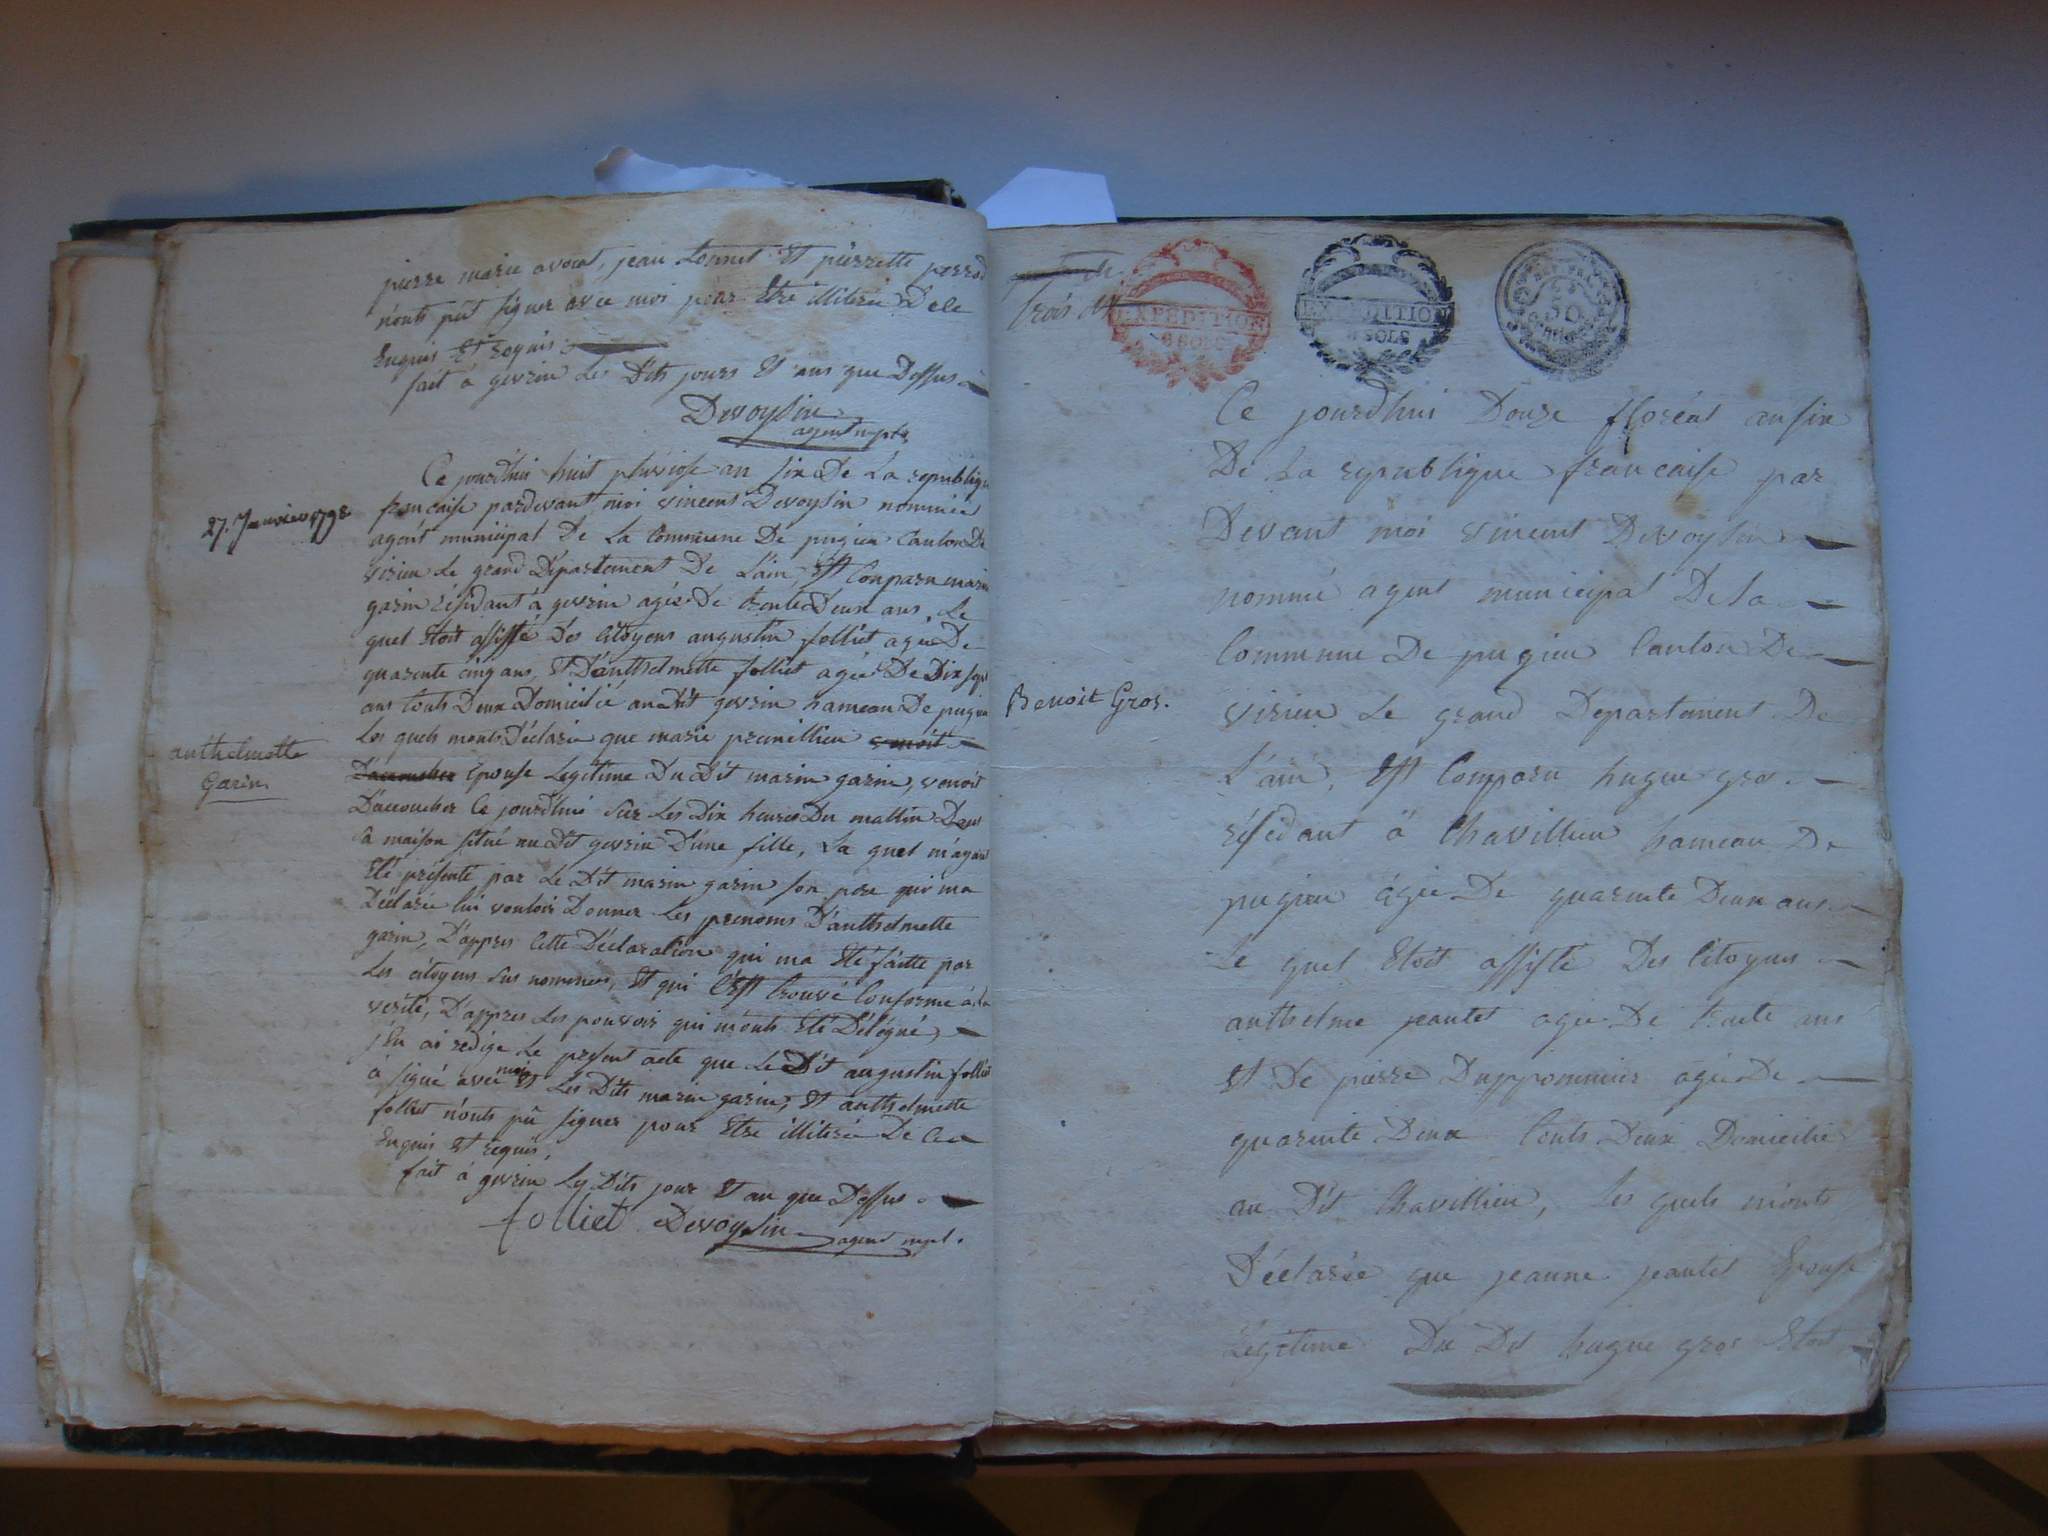 pierre marie avocat, jean Connet Et pierrette perrod
n'onts pût signer avec moi pour Etre illiteré De ce
Enquis Et requis
fait à gevrin Les Dits jours Et ans que Dessus
Devoysin
agent mpl
Ce jourd'hui huit pluviose an six De La republique
francaise pardevant moi vincent Devoysin nommée
agent municipal De La Commune De pugieu Canton De
virieu Le grand Departement De L'ain Est Comparu marin
garin résidant à gevrin agée De trente Deux ans, Le
quel Etoit assisté Des Citoyens augustin folliet agée De
quarente cinq ans, Et D'anthelmette folliet agée De Dix sept
ans touts Deux Domicilié au Dit gevrin hameau De pugieu
Les quels m'onts Déclarée que marie prunillieu venoit
D'accoucher Epouse Legitime Du Dit marin garin, venoit
D'accoucher Ce jourd'hui sur Les Dix heures Du mattin Dans
sa maison situé au Dit gevrin D'une fille, La quel m'ayant
Eté présenté par Le Dit marin garin son pere qui ma
Déclarée lui vouloir Donner Les prenoms D'anthelmette
garin, D'appres Cette Déclaration qui ma Eté faitte par
Les citoyens sus nommées, Et qui C'est trouvé Conforme à la
verité, D'appres Les pouvoir qui m'onts Eté Délégué,
j'En ai redigé Le present acte que Le Dit augustin folliet
à signé avec moi Et Les Dits marin garin, Et anthelmette
folliet n'onts pû signer pour Etre illiteré De Ce
Enquis Et requis.
fait à gevrin Les Dits jour Et an que Dessus
folliet Devoysin agent mpl.
27. Janvier 1798
anthelmette
Garin
trois
EXPEDITION
6 SOLS
EXPEDITION
6 SOLS
REP. FRA.
50
Ce jourd'hui Douze floréal an six
De La republique francaise par
Devant moi vincent Devoysin
nommé agent municipal De la
Commune De pugieu Canton De
virieu Le grand Departement De
L'ain, Est Comparu hugue gros
résidant à Chavillieu hameau De
pugieu agée De quarente Deux ans
Le quel Etoit assisté Des Citoyens
anthelme jeantet agée De trente ans
Et De pierre Dupponmier agée De
quarente Deux touts Deux Domicilié
au Dit Chavillieu, Les quels m'onts
Déclarée que jeanne jeantet Epouse
Légitime Du Dit hugue gros Etoit
Benoit Gros.